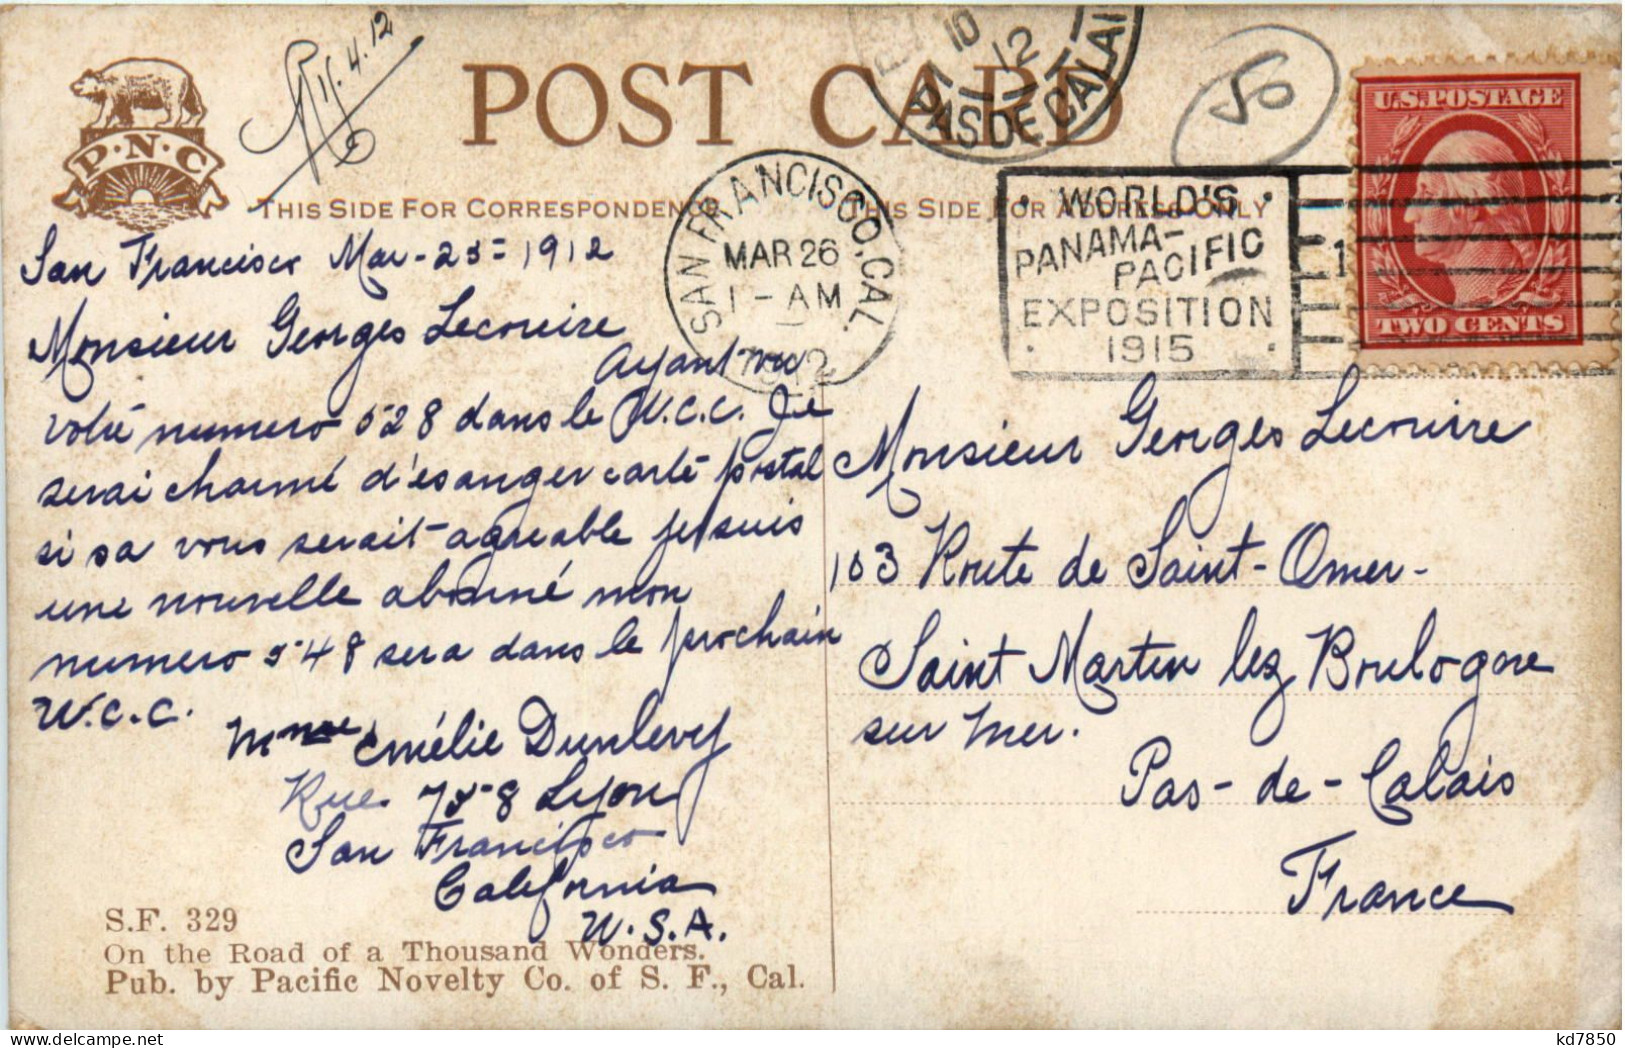 R 11.4.12
POST CARD
10
12
PAS DE CALAIS
50
U.S. POSTAGE
TWO CENTS
P·N·C
THIS SIDE FOR CORRESPONDENCE
THIS SIDE FOR ADDRESS ONLY
SAN FRANCISCO, CAL.
MAR 26
1 - AM
WORLD'S
PANAMA-
PACIFIC
EXPOSITION
1915
1
San Francisco Mar-25-1912
Monsieur Georges Lecouire
Ayant vu
votre numero 528 dans le W.C.C. Je
serai charmé d'esanger carte postal
si sa vous serait agreable je suis
une nouvelle abonné mon
numero 548 sera dans le prochain
W.C.C.
Mme Emélie Dunlevy
Rue 758 Lyon
San Francisco
California
U.S.A.
Monsieur Georges Lecouire
103 Route de Saint-Omer-
Saint Martin lez Boulogne
sur mer.
Pas-de-Calais
France
S.F. 329
On the Road of a Thousand Wonders.
Pub. by Pacific Novelty Co. of S. F., Cal.
kd7850